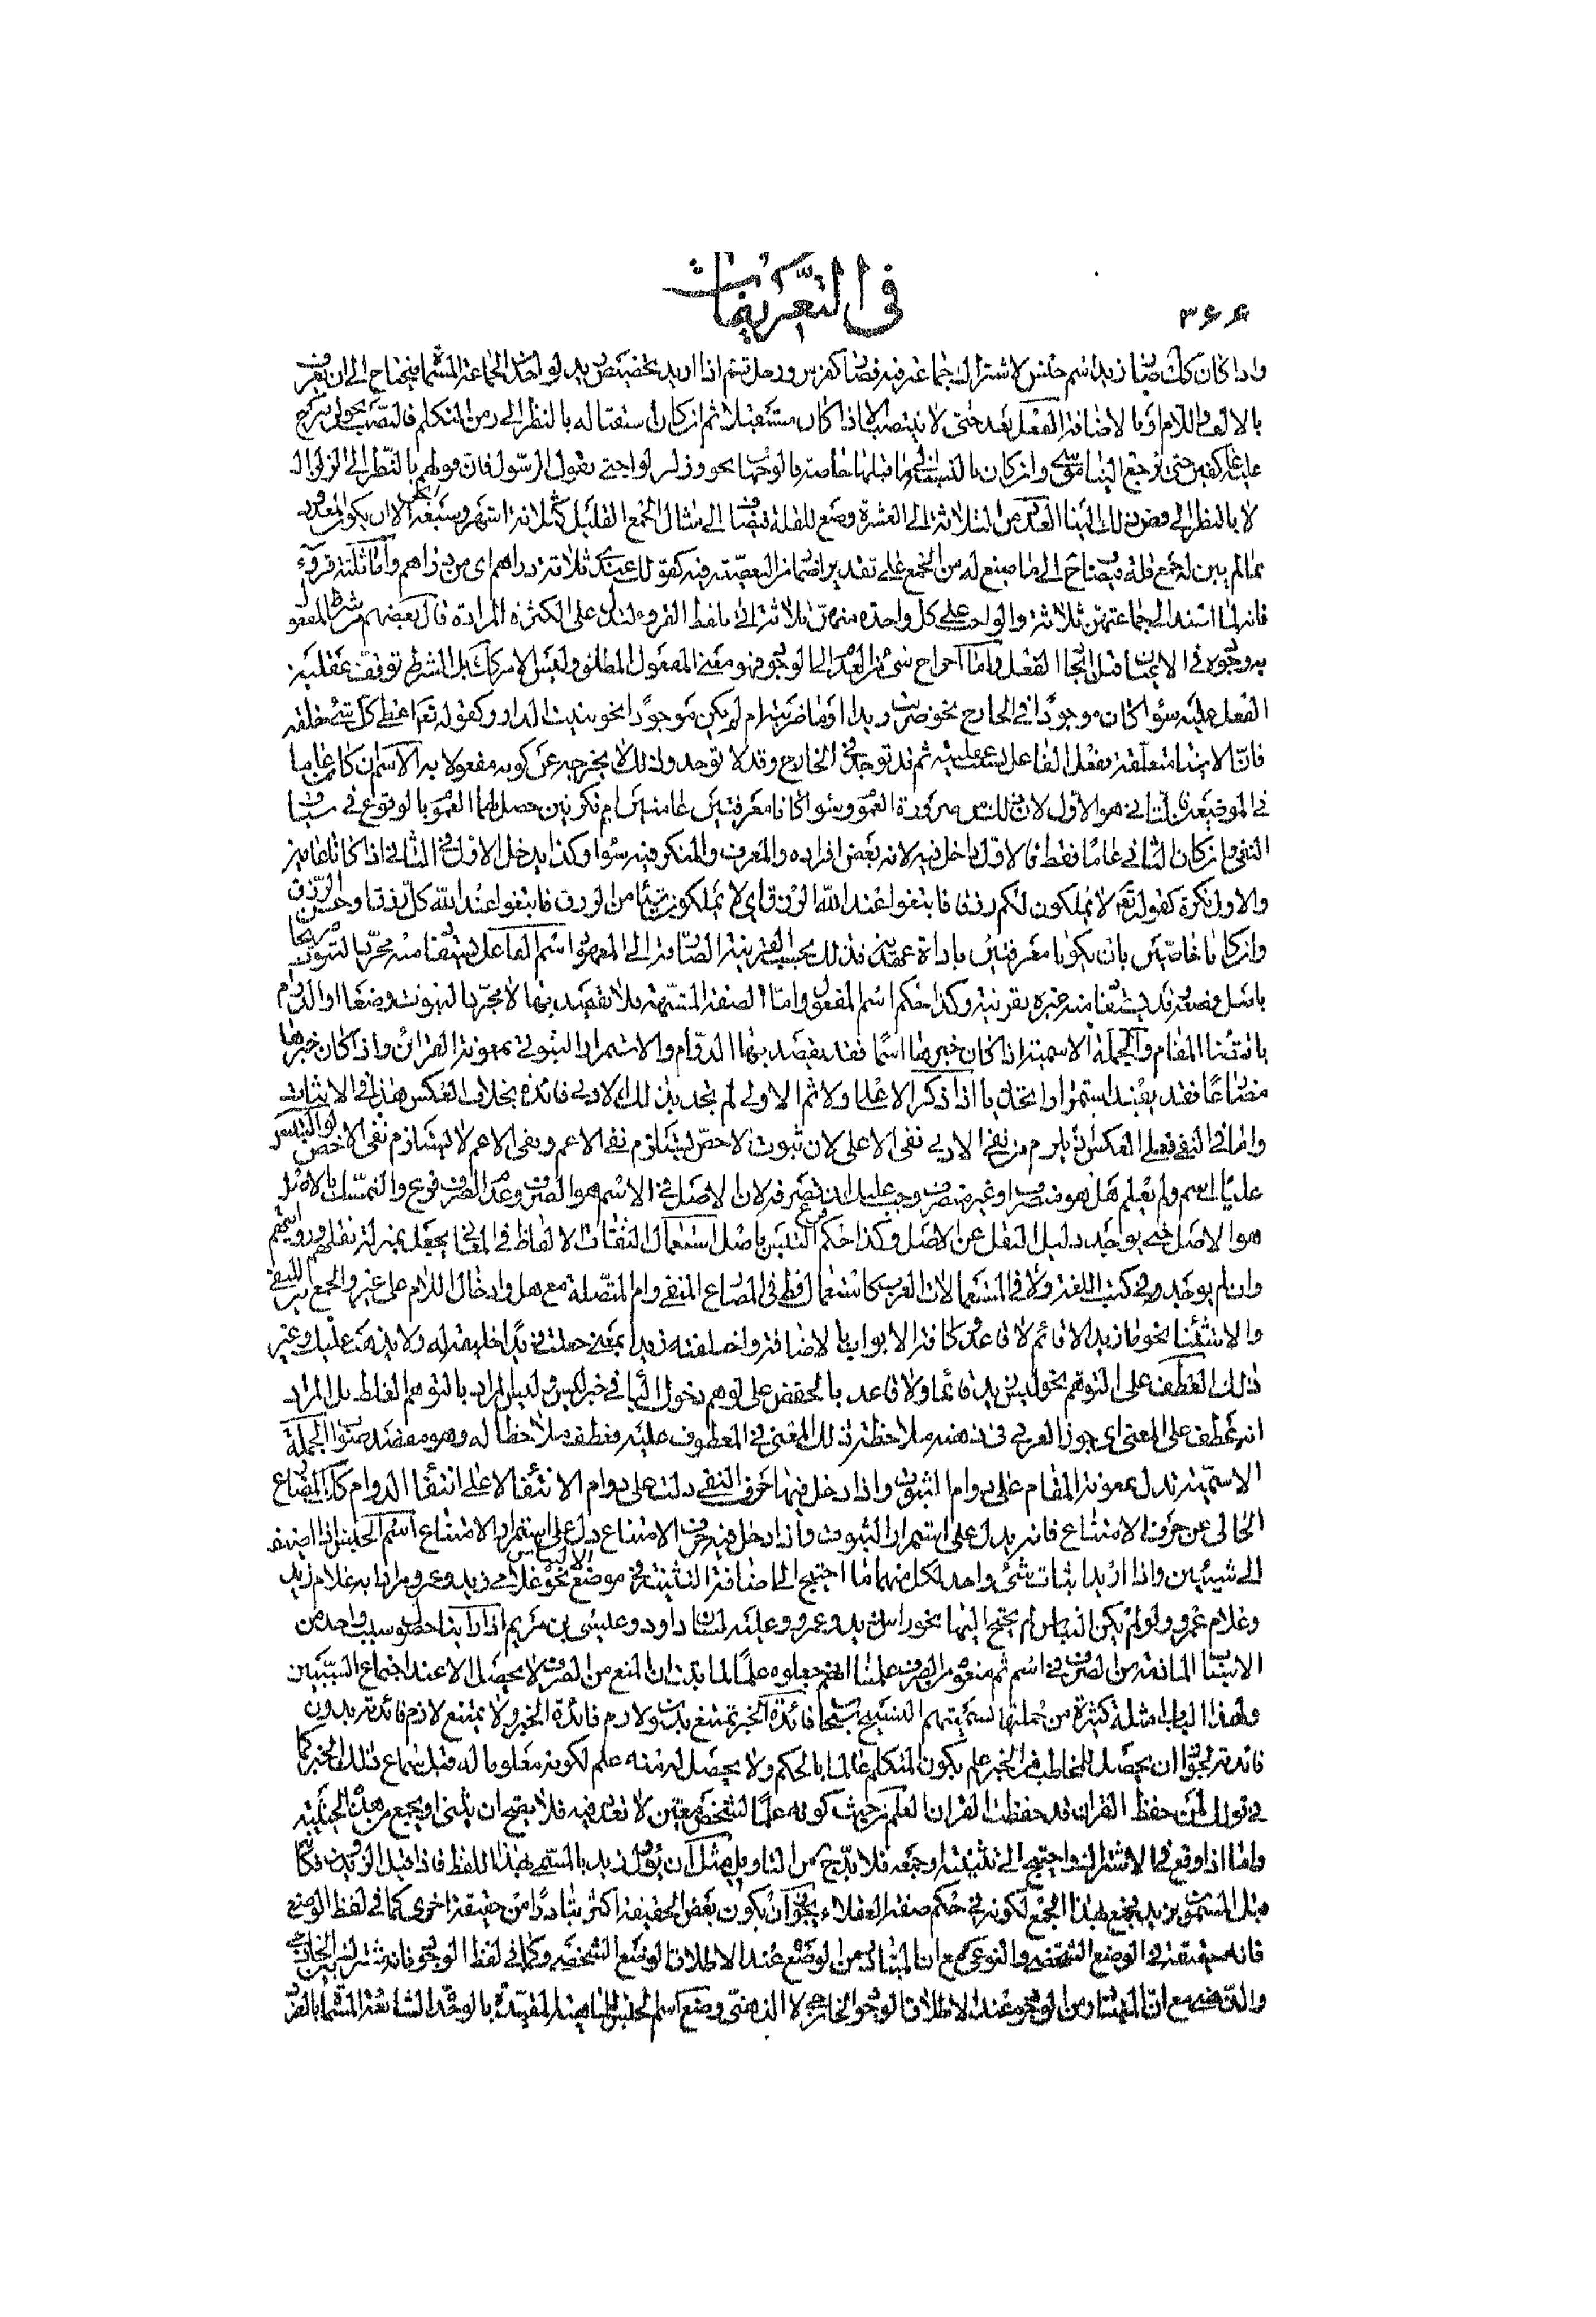 في التعريفات
٣۶۶
واذا كان كك صار زيد اسم جنس لاشتراك جماعة فيه فصار كفرس ورجل ثم اذا اريد تخصيص زيد لواحد الجماعة المسماة فيحتاج الى ان يعرف
بالالف واللام او بالاضافة الفعل بعد حتى لا ينتصب الا اذا كان مستقبلا ثم ان كان استقباله بالنظر الى زمن المتكلم فالنصب نحو لن نبرح
عليه عاكفين حتى يرجع الينا موسى وان كان بالنسبة الى ما قبلها خاصة فالوجهان نحو وزلزلوا حتى يقول الرسول فان قولهم بالنظر الى الزلزال
لا بالنظر الى قص ذلك لينا العدد من الثلاثة الى العشرة وضع للقلة فيضاف الى مثال الجمع القليل كثلاثة اشهر وسبعة ابحر الا ان يكون المعدود
مما لم يبن له جمع قلة فيضاف الى ما صيغ له من الجمع على تقدير اضمار من البعضية فيه كقولك عندي ثلاثة دراهم اي من دراهم واما ثلثة قروء
فانه لما اسند الى جماعتهن ثلاثة والواجب على كل واحدة منهن ثلاثة اتى بلفظ القروء لتدل على الكثرة المرادة قال بعضهم شرط المفعول
به وجوده في الاعيان قبل ايجاد الفعل واما اخراج شيء من العدم الى الوجود فهو معنى المفعول المطلق وليس الامر كك بل الشرط توقف عقلية
الفعل عليه سواء كان موجودا في الخارج نحو ضربت زيدا او ما ضربته ام لم يكن موجودا نحو بنيت الدار وكقوله تعم اعطى كل شيء خلقه
فان الاشياء متعلقة بفعل الفاعل بحسب عقليته ثم قد توجد في الخارج وقد لا توجد وذلك لا يخرجه عن كونه مفعولا به الاسمان كانا عاما
في الموضعين فالثاني هو الاول لان ذلك من ضرورة العموم وسواء كانا معرفتين عامتين ام نكرتين حصل لهما العموم بالوقوع في سياق
النفي وان كان الثاني عاما فقط فالاول داخل فيه لانه بعض افراده والمعرف والمنكر فيه سواء وكذا يدخل الاول في الثاني اذا كانا عامين
والاول نكرة كقوله تعم لا يملكون لكم رزقا فابتغوا عند الله الرزق اي لا يملكون شيئا من الرزق فابتغوا عند الله كل رزق
وان كانا خاصين بان يكونا معرفتين باداة عهدية فذلك بحسب القرينة الصارفة الى المعهود اسم الفاعل يستفاد منه مجرد الثبوت صريحا
باصل وضعه وقد يستفاد منه غيره بقرينة وكذا حكم اسم المفعول واما الصفة المشبهة فلا يقصد بها الا مجرد الثبوت وضعا او الدوام
باقتضاء المقام والجملة الاسمية اذا كان خبرها اسما فقد يقصد بها الدوام والاستمرار الثبوتي بمعونة القرائن واذا كان خبرها
مضارعا فقد يفيد استمرارا تجدديا اذا ذكر الاعلى اولا ثم الادنى لم تجد بذكر الادنى فائدة بخلاف العكس هذا في الاثبات
واما في النفي فعلى العكس اذ يلزم من نفي الادنى نفي الاعلى لان ثبوت الاخص يستلزم نفي الاعم ونفي الاعم لا يستلزم نفي الاخص لو التبس
عليك اسم ولم يعلم هل هو منصرف او غير منصرف وجب عليك ان تصرفه لان الاصل في الاسم هو الصرف وعدم الصرف فرع والتمسك بالاصل
هو الاصل حتى يوجد دليل النقل عن الاصل وكذا حكم فرع التبس باصل استعمال الثقات الالفاظ في المعاني يجعل بمنزلة نقلهم وروايتهم
وان لم يوجد في كتب اللغة ولا في استعمالات العرب كاستعمال قط في المضارع المنفي وام المتصلة مع هل وادخال اللام على غير والجمع بين النفي
والاستثناء نحو ما زيد الا قائم لا قاعد وكافة الابواب بالاضافة
ذلك العطف على التوهم نحو ليس زيد قائما ولا قاعد بالخفض على توهم دخول الباء في خبر ليس وليس المراد بالتوهم الغلط بل المراد
انه عطف على المعنى اي جوز العربي في ذهنه ملاحظة ذلك المعنى في المعطوف عليه فعطف ملاحظا له وهو مقصد صواب الجملة
الاسمية تدل بمعونة المقام على دوام الثبوت واذا دخل فيها حرف النفي دلت على دوام الانتفاء لا على انتفاء الدوام كذا المضارع
الخالي عن حرف الامتناع فانه يدل على استمرار الثبوت واذا دخل فيه حرف الامتناع دل على استمرار الامتناع اسم الجنس اذا اضيف
الى شيئين واذا اريد اثبات شيء واحد لكل منهما ما احتيج الى اضافة التثنية في موضع الالتباس نحو غلامي زيد وعمرو مرادا به غلام زيد
وغلام عمرو ولو لم يكن التباس لم يحتج اليها نحو راس زيد وعمرو وعليه لسان داود وعيسى بن مريم اذا راينا حصول سبب واحد من
الاسباب المانعة من الصرف في اسم ثم منعوه من الصرف علمنا انهم جعلوه علما لما ثبت ان المنع من الصرف لا يحصل الا عند اجتماع السببين
ولهذا الباب امثلة كثيرة من جملتها تسميتهم التسبيح بسبحان فائدة الخبر تمتنع بدون لازم فائدة الخبر ولا يمتنع لازم فائدته بدون
فائدته لجواز ان يحصل للمخاطب من الخبر علم بكون المتكلم عالما بالحكم ولا يحصل له منه علم لكونه معلوما له قبل سماع ذلك الخبر كما
في قولك لمن حفظ القران قد حفظت القران العلم من حيث كونه علما لشخص معين لا تعدد فيه فلا يصح ان يثنى او يجمع من هذه الحيثية
واما اذا وقع فيه الاشتراك واحتيج الى تثنيته او جمعه فلا بد حينئذ من التاويل مثل ان يؤول زيد بالمسمى بهذا اللفظ فاذا قيل الزيدون فكانه
قيل المسمون بزيد يجمع بهذا الجمع لكونه في حكم صفة العقلاء يجوز ان يكون بعض الحقيقة اكثر تبادرا من حقيقة اخرى كما في لفظ الوضع
فانه حقيقة في الوضع الشخصي والنوعي مع ان المتبادر من الوضع عند الاطلاق الوضع الشخصي وكما في لفظ الوجود فانه مشترك بين الخارجي
والذهني مع ان المتبادر من الوجود عند الاطلاق الوجود الخارجي لا الذهني وضع اسم الجنس للماهية المقيدة بالوحدة الشائعة المسماة بالفرد